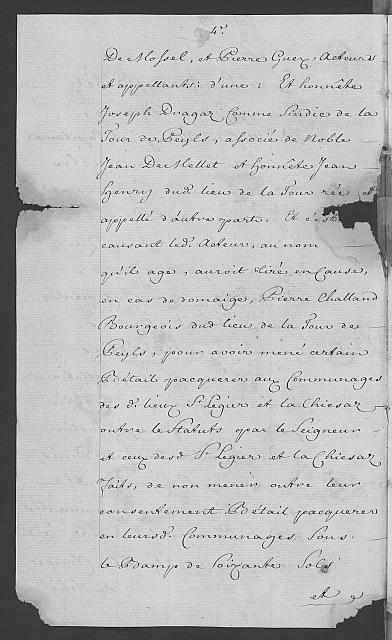 4.
De Mossel, et Pierre Guex, Acteurs
et appellants: d'une: Et honnête
Joseph Dragaz Comme Sindic de la
Tour de Peyls, associé de Noble
Jean De Mellet et honnête Jean
Henry dud. lieu de la Tour rée et
appellé d'autre part. Et c'est
causant led. Acteur, au nom
qu'il age, auroit tiré en Cause,
en cas de domaige, Pierre Challand
Bourgeois dud. lieu de la Tour de
Peyls, pour avoir mené certain
Bétail pacquerer aux Communages
des d. lieux St. Légier et la Chiesaz
outre le Statuts par le Seigneur
et ceux desd. St. Légier et la Chiesaz
faits, de non mener outre leur
consentement Bétail pacquerer
en leursd. Communages Sous
le Bamp de Soixante Sols
et